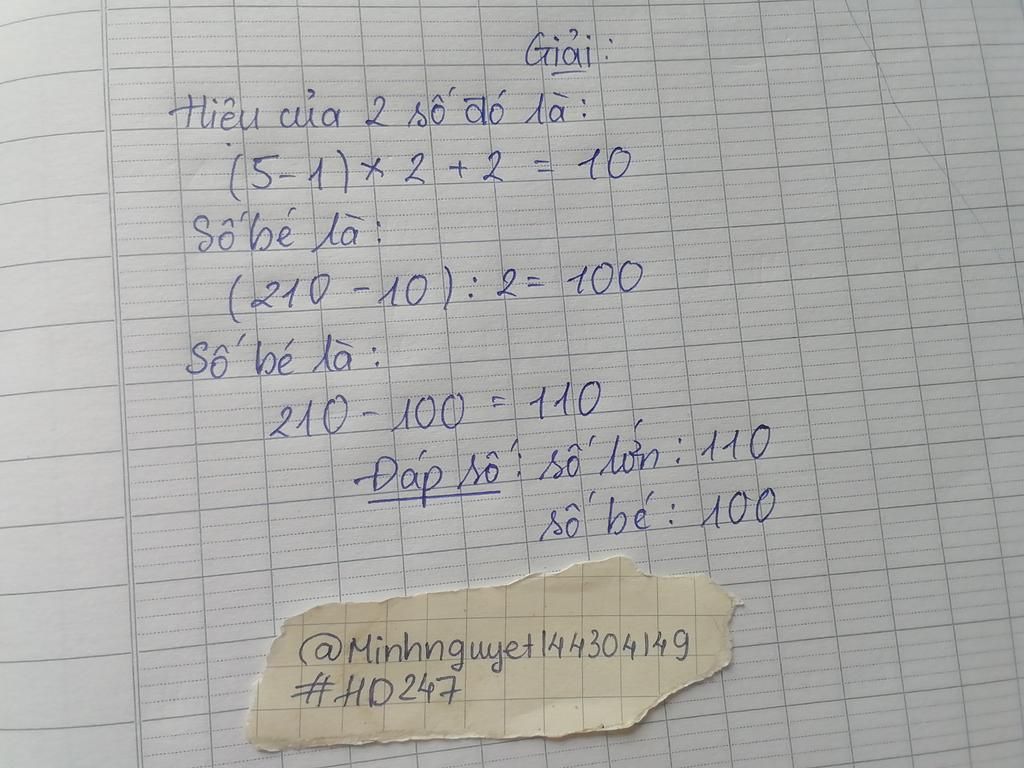 Giải:
Hiệu của 2 số đó là:
(5-1) × 2 + 2 = 10
Số bé là:
(210 - 10) : 2 = 100
Số bé là:
210 - 100 = 110
Đáp số: số lớn: 110
số bé: 100
@Minhnguyet144304149
#HD247